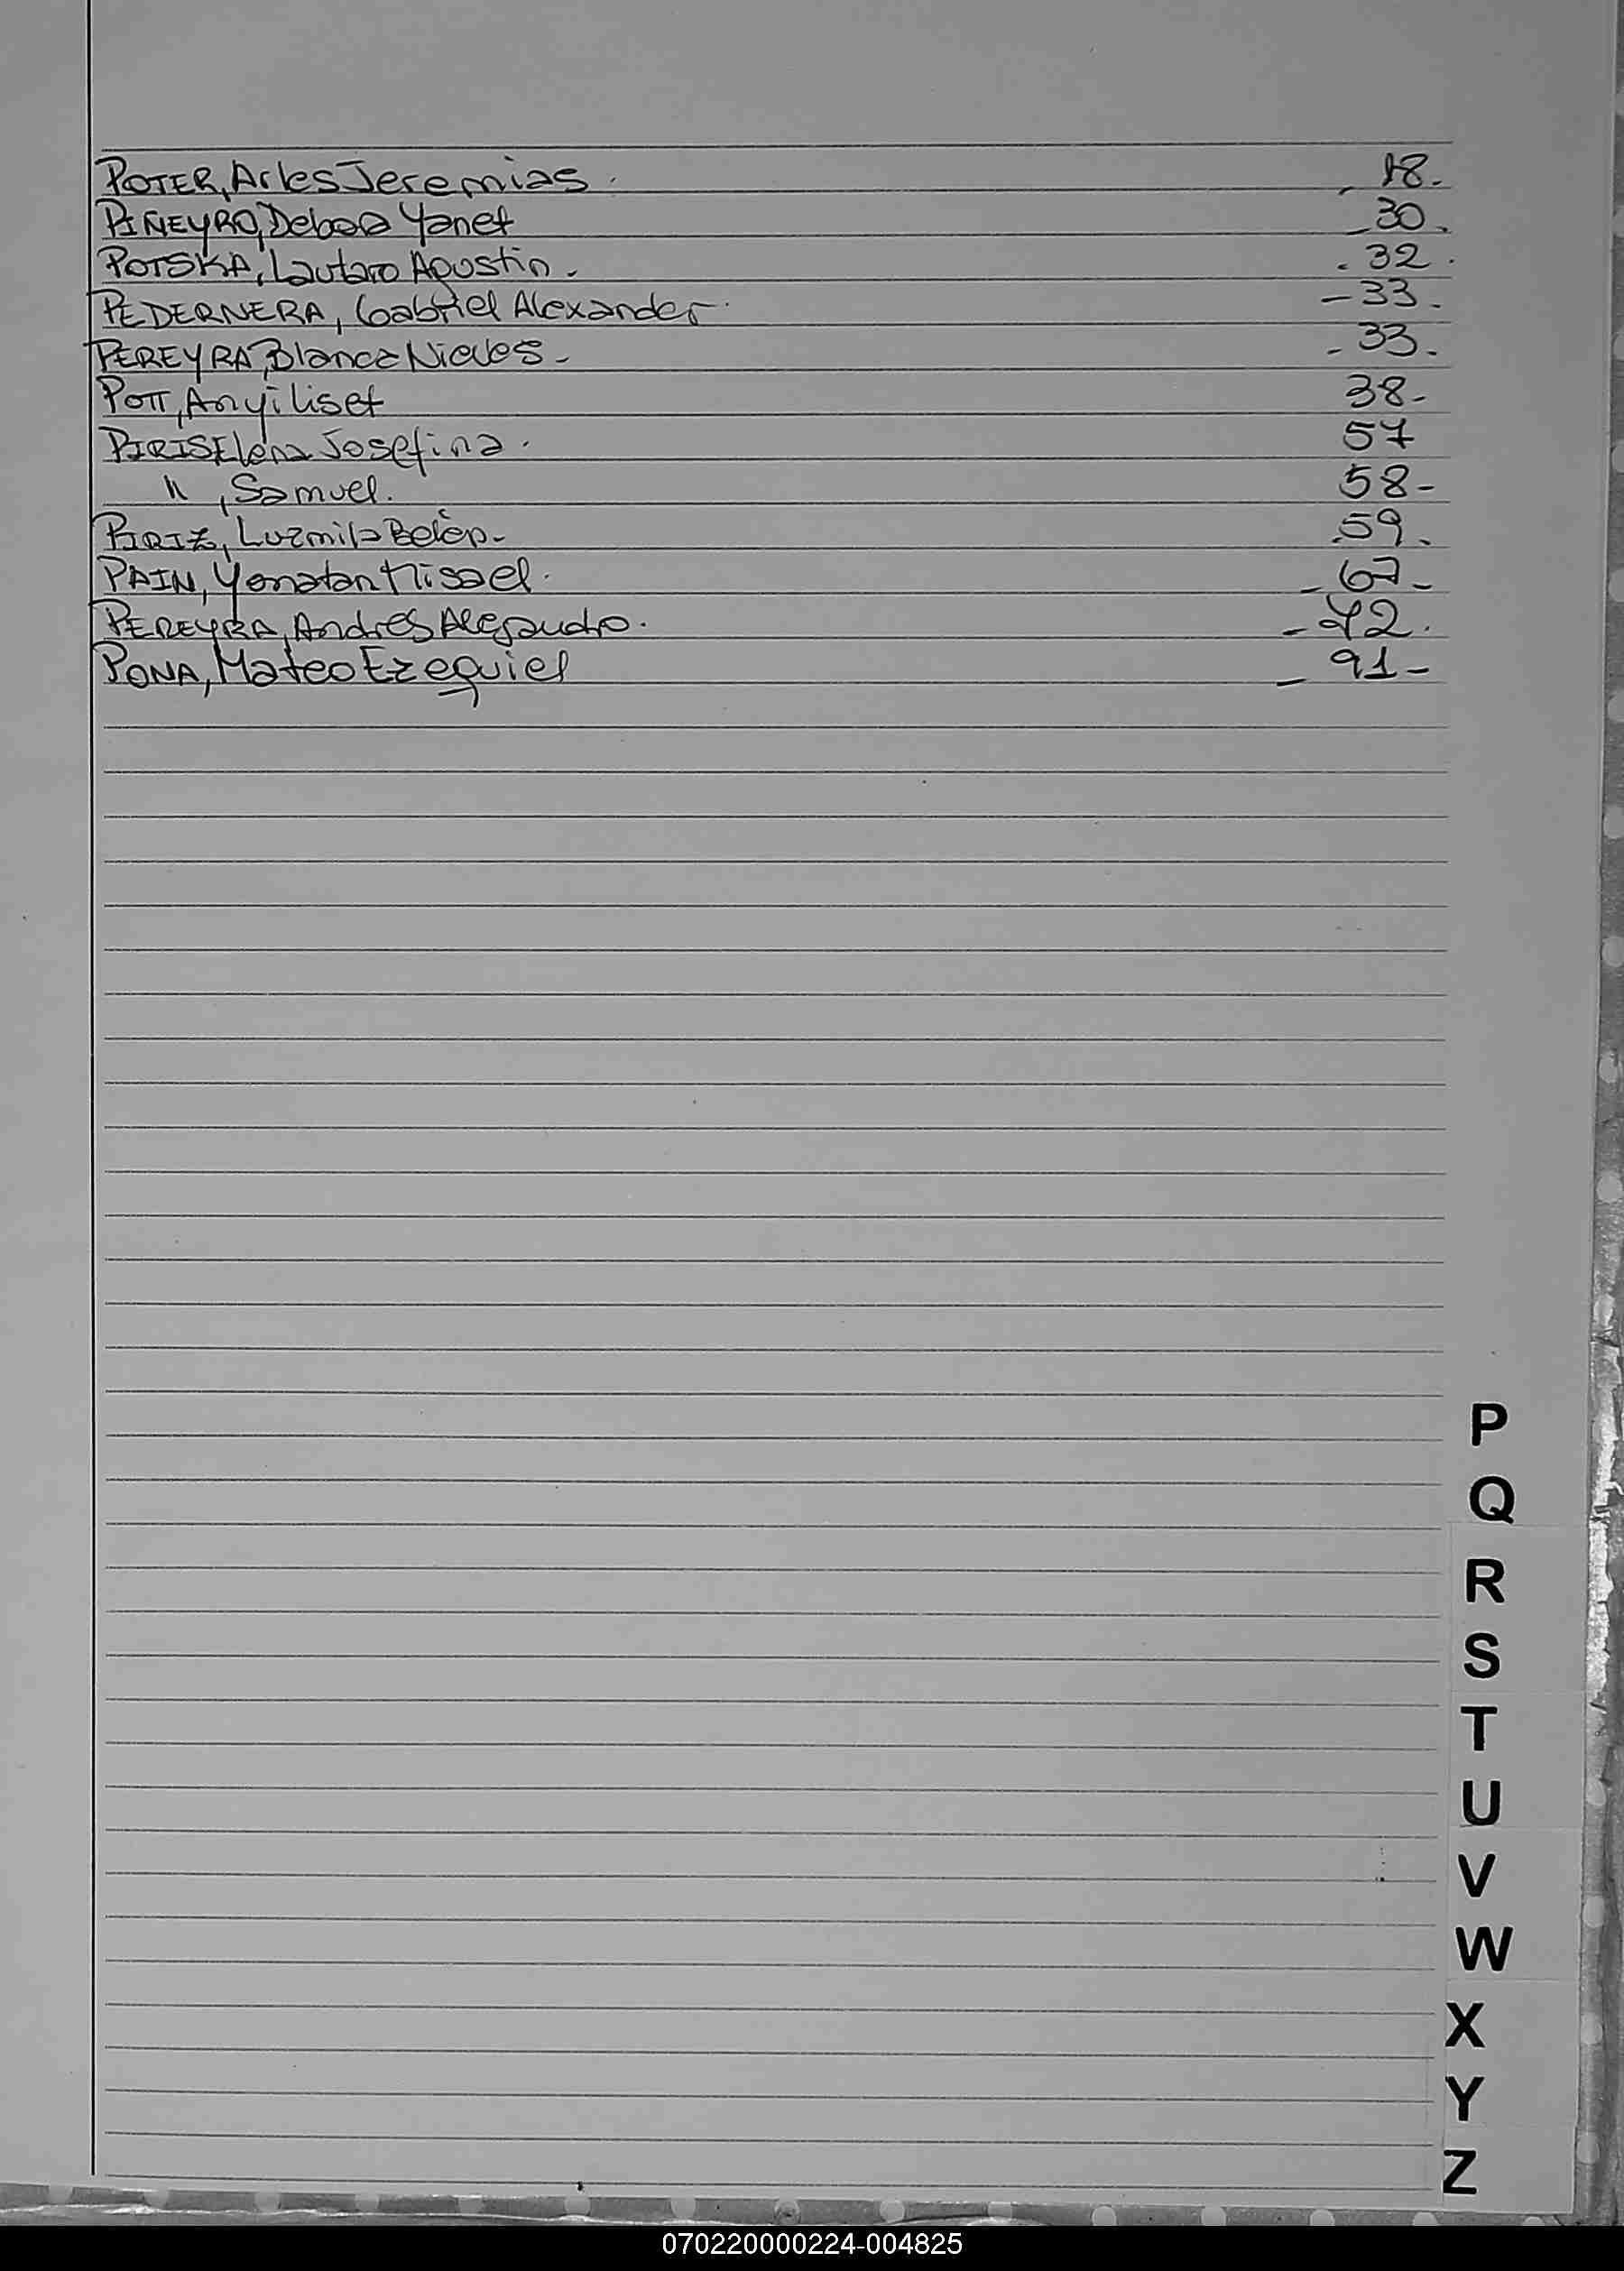 POTER, Arles Jeremias. - 18-
PIÑEYRO, Debora Yanet - 30.
POTSKA, Lautaro Agustin. - 32.
PEDERNERA, Gabriel Alexander. - 33.
PEREYRA, Blanca Nieves - - 33.
POTT, Anyi Liset 38-
PIRIS Elena Josefina. 57
" , Samuel. 58-
PIRIZ, Luzmila Belén - 59.
PAIN, Yonatan Misael. - -
PEREYRA, Andrés Alejandro. - 72.
PONA, Mateo Ezequiel - 91-
P
Q
R
S
T
U
V
W
X
Y
Z
070220000224-004825